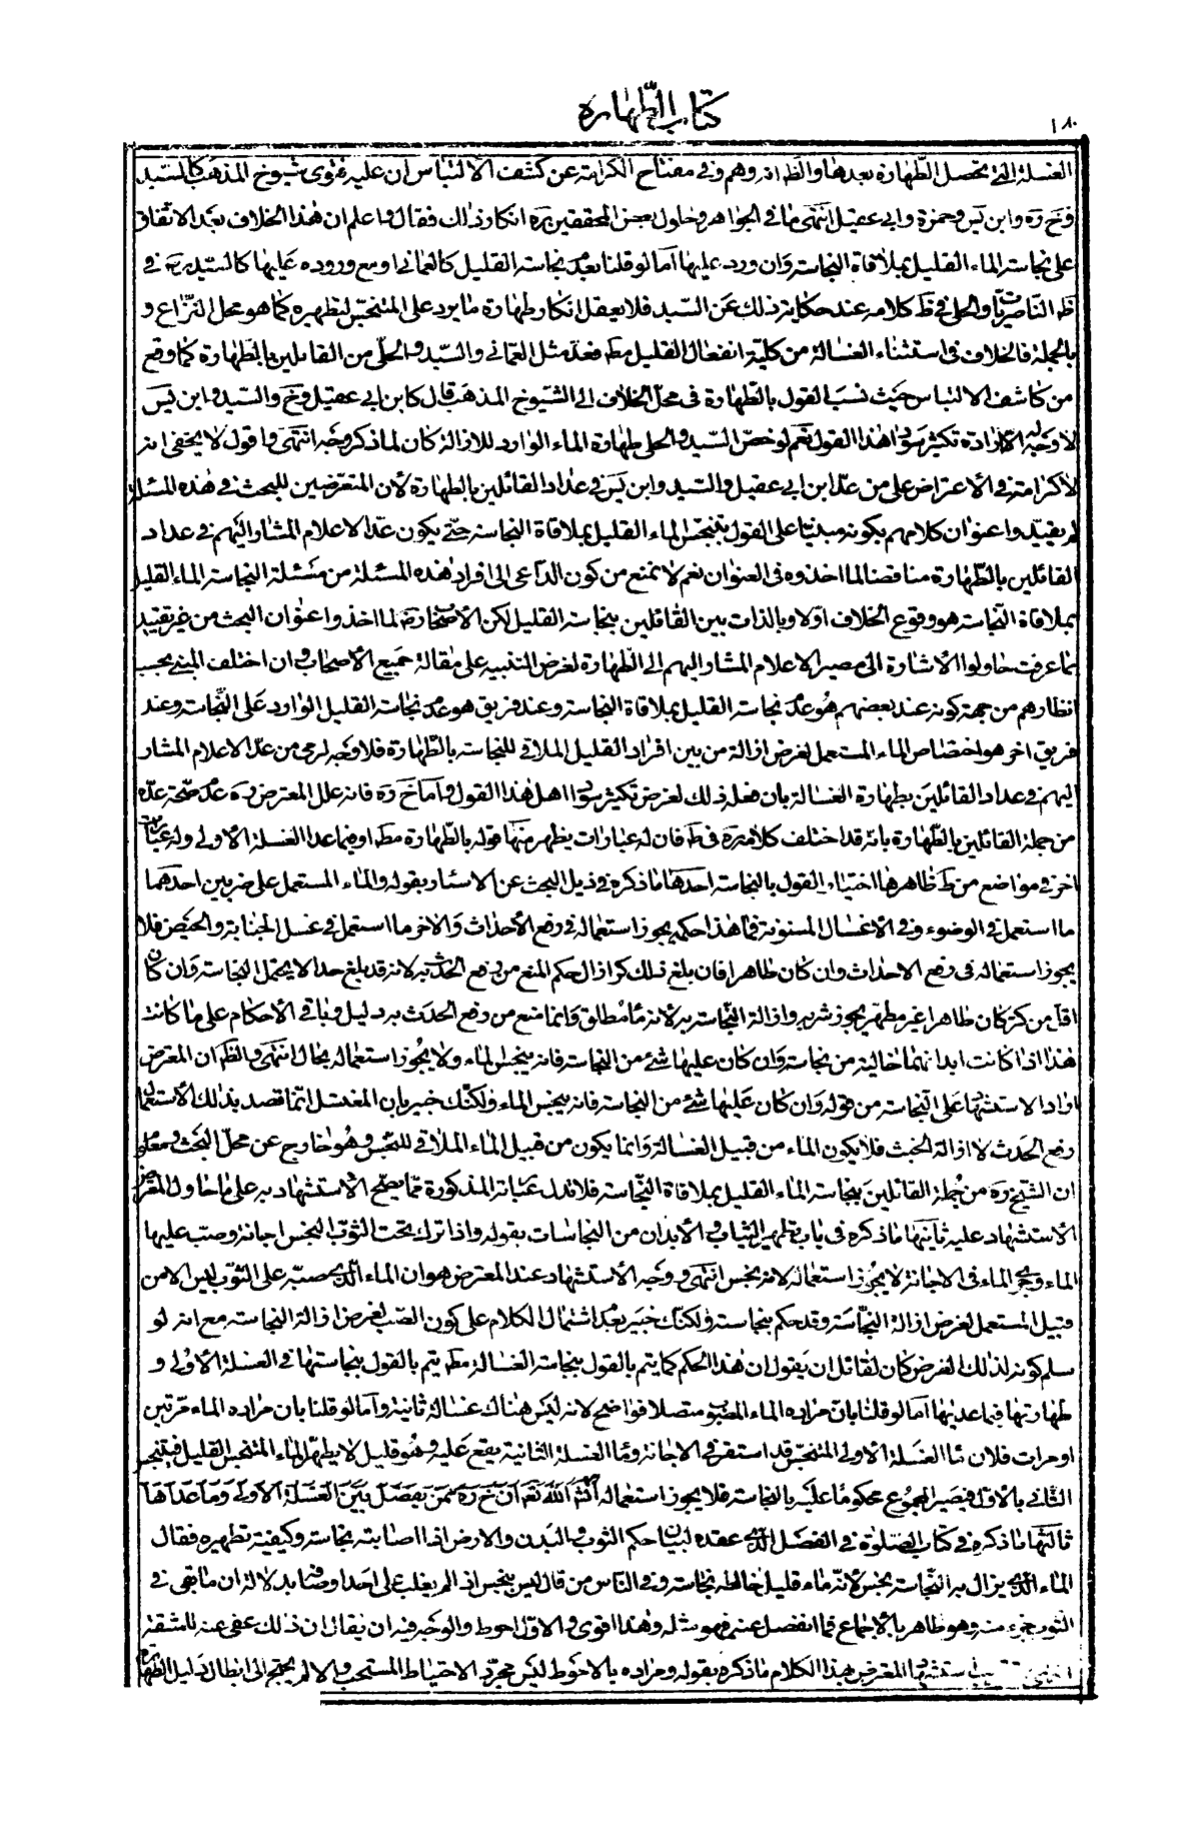 كتاب الطهارة
١٨٠
الغسلة التي تحصل الطهارة بعدها والظاهر وهم وفي مفتاح الكرامة عن كشف الالتباس ان عليه فتوى شيوخ المذهب كالسيد
وخ ره وابن يس وحمزة وابي عقيل انتهى ما في الجواهر وحاول بعض المحققين ره انكار ذلك فقال واعلم ان هذا الخلاف بعد الاتفاق
على نجاسة الماء القليل بملاقاة النجاسة وان ورد عليها اما لو قلنا بعدم نجاسة القليل كالعماني او مع وروده عليها كالسيد ره في
ظ الناصريات والحلي في ظ كلامه عند حكاية ذلك عن السيد فلا يعقل انكار طهارة ما يرد على المتنجس لتطهيره كما هو محل النزاع و
بالجملة فالخلاف في استثناء الغسالة من كلية انفعال القليل مط فعد مثل العماني والسيد والحلي من القائلين بالطهارة كما وقع
من كاشف الالتباس حيث نسب القول بالطهارة في محل الخلاف الى الشيوخ المذهب قال كابن ابي عقيل وخ والسيد وابن يس
لا وجه له الا ارادة تكثير سواد هذا القول نعم لو خص السيد والحلي طهارة الماء الوارد للازالة كان لما ذكر وجه انتهى واقول لا يخفى انه
لا كرامة في الاعتراض على من عد ابن ابي عقيل والسيد وابن يس في عداد القائلين بالطهارة لان المتعرضين للبحث في هذه المسئلة
لم يقيدوا عنوان كلامهم بكونه مبنيا على القول بتنجس الماء القليل بملاقاة النجاسة حتى يكون عد الاعلام المشار اليهم في عداد
القائلين بالطهارة مناقضا لما اخذوه في العنوان نعم لا نمنع من كون الداعي الى افراد هذه المسئلة من مسئلة النجاسة الماء القليل
بملاقاة النجاسة هو وقوع الخلاف اولا وبالذات بين القائلين بنجاسة القليل لكن الاصحاب ره لما اخذوا عنوان البحث من غير تقييد
كما عرفت حاولوا الاشارة الى مصير الاعلام المشار اليهم الى الطهارة لغرض التنبيه على مقالة جميع الاصحاب وان اختلف المبنى بحسب
انظارهم من جهة كونه عند بعضهم هو عدم نجاسة القليل بملاقاة النجاسة وعند فريق هو عدم نجاسة القليل الوارد على النجاسة وعند
فريق اخر هو اختصاص الماء المستعمل لغرض ازالة من بين افراد القليل الملاقي للنجاسة بالطهارة فلا وجه لرمي من عد الاعلام المشار
اليهم في عداد القائلين بطهارة الغسالة بان فعله ذلك لغرض تكثير سواد اهل هذا القول واما خ ره فانه علل المعترض ره عدم صحة عده
من جملة القائلين بالطهارة بانه قد اختلف كلامه ره في ط فان له عبارات يظهر منها قوله بالطهارة مط او فيما عدا الغسلة الاولى وله عبارات
اخر في مواضع من ط ظاهرها اختيار القول بالنجاسة احدها ما ذكره في ذيل البحث عن الاسئار بقوله والماء المستعمل على ضربين احدهما
ما استعمل في الوضوء وفي الاغسال المسنونة فما هذا حكمه يجوز استعماله في رفع الاحداث والاخر ما استعمل في غسل الجنابة والحيض فلا
يجوز استعماله في رفع الاحداث وان كان طاهرا فان بلغ ذلك كرا زال حكم المنع من رفع الحدث به لانه قد بلغ حدا لا يحتمل النجاسة وان كان
اقل من كر كان طاهرا غير مطهر يجوز شربه وازالة النجاسة به لانه ماء مطلق وانما منع من رفع الحدث به دليل وباقي الاحكام على ما كانت
هذا اذا كانت ابدانهما خالية من نجاسة وان كان عليها شئ من النجاسة فانه ينجس الماء ولا يجوز استعماله بحال انتهى والظ ان المعترض
اراد الاستشهاد على النجاسة من قوله وان كان عليها شئ من النجاسة فانه ينجس الماء ولكنك خبير بان المغتسل انما قصد بذلك الاستعمال
رفع الحدث لا ازالة الخبث فلا يكون الماء من قبيل الغسالة وانما يكون من قبيل الماء الملاقي للنجس وهو خارج عن محل البحث ومعلوم
ان الشيخ ره من جملة القائلين بنجاسة الماء القليل بملاقاة النجاسة فلا تدل عبارته المذكورة مما يصح الاستشهاد به على ما حاول المعترض
الاستشهاد عليه ثانيتها ما ذكره في باب تطهير الثياب والابدان من النجاسات بقوله واذا ترك تحت الثوب النجس اجانة وصب عليها
الماء وجرى الماء في الاجانة لا يجوز استعماله لانه نجس انتهى ووجه الاستشهاد عند المعترض هو ان الماء الذي صبه على الثوب ليس الا من
قبيل المستعمل لغرض ازالة النجاسة وقد حكم بنجاسته ولكنك خبير بعدم اشتمال الكلام على كون الصب لغرض ازالة النجاسة مع انه لو
سلم كونه لذلك الغرض كان لقائل ان يقول ان هذا الحكم كما يتم بالقول بنجاسة الغسالة مط يتم بالقول بنجاستها في الغسلة الاولى و
طهارتها فيما عديها اما لو قلنا بان مراده الماء المصبوب متصلا فواضح لانه ليس هناك غسالة ثانية واما لو قلنا بان مراده الماء مرتين
او مرات فلان ماء الغسلة الاولى المتنجس قد استقر في الاجانة وماء الغسلة الثانية يقع عليه وهو قليل لا يطهر الماء المتنجس القليل فيتنجس
الثاني بالاول فيصير المجموع محكوما عليه بالنجاسة فلا يجوز استعماله اللهم الا ان خ ره ممن يفصل بين الغسلة الاولى وما عداها
ثالثها ما ذكره في كتاب الصلوة في الفصل الذي عقده لبيان حكم الثوب والبدن والارض اذا اصابته نجاسة وكيفية تطهيره فقال
الماء الذي يزال به النجاسة نجس لانه ماء قليل خالطه نجاسة وفي الناس من قال ليس بنجس اذا لم يغلب على احد اوصافه بدلالة ان ما بقي في
الثوب جزء منه وهو طاهر بالاجماع فما انفصل عنه فهو مثله وهذا اقوى والاول احوط والوجه فيه ان يقال ان ذلك عفي عنه للمشقة
استشهاد المعترض بهذا الكلام ما ذكره بقوله ومراده بالاحوط ليس مجرد الاحتياط المستحب والا لم يحتج الى ابطال دليل الطهارة